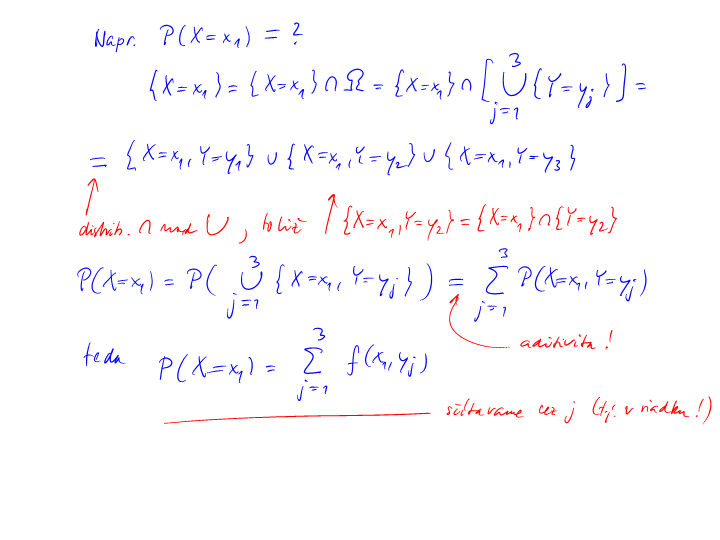 Napr. P(X=x₁) = ?
{X=x₁} = {X=x₁} ∩ Ω = {X=x₁} ∩ [ ⋃_{j=1}^{3} {Y=y_j} ] =
= {X=x₁, Y=y₁} ∪ {X=x₁, Y=y₂} ∪ {X=x₁, Y=y₃}
distrib. ∩ nad ∪, totiž {X=x₁, Y=y₂} = {X=x₁} ∩ {Y=y₂}
P(X=x₁) = P( ⋃_{j=1}^{3} {X=x₁, Y=y_j} ) = ∑_{j=1}^{3} P(X=x₁, Y=y_j)
aditivita!
teda P(X=x₁) = ∑_{j=1}^{3} f(x₁, y_j)
sčítavame cez j (tj. v riadku!)